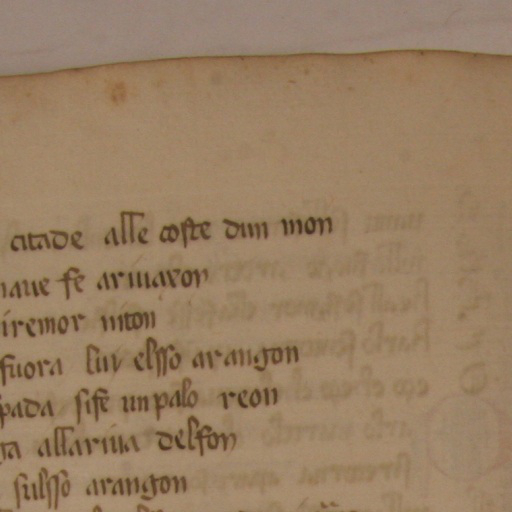 citade alle coste dun mon
naue fe ariuaron
iremor niton
fuora lui elsso arangon
pada sife un palo reon
ga allariua delfon
sulsso arangon